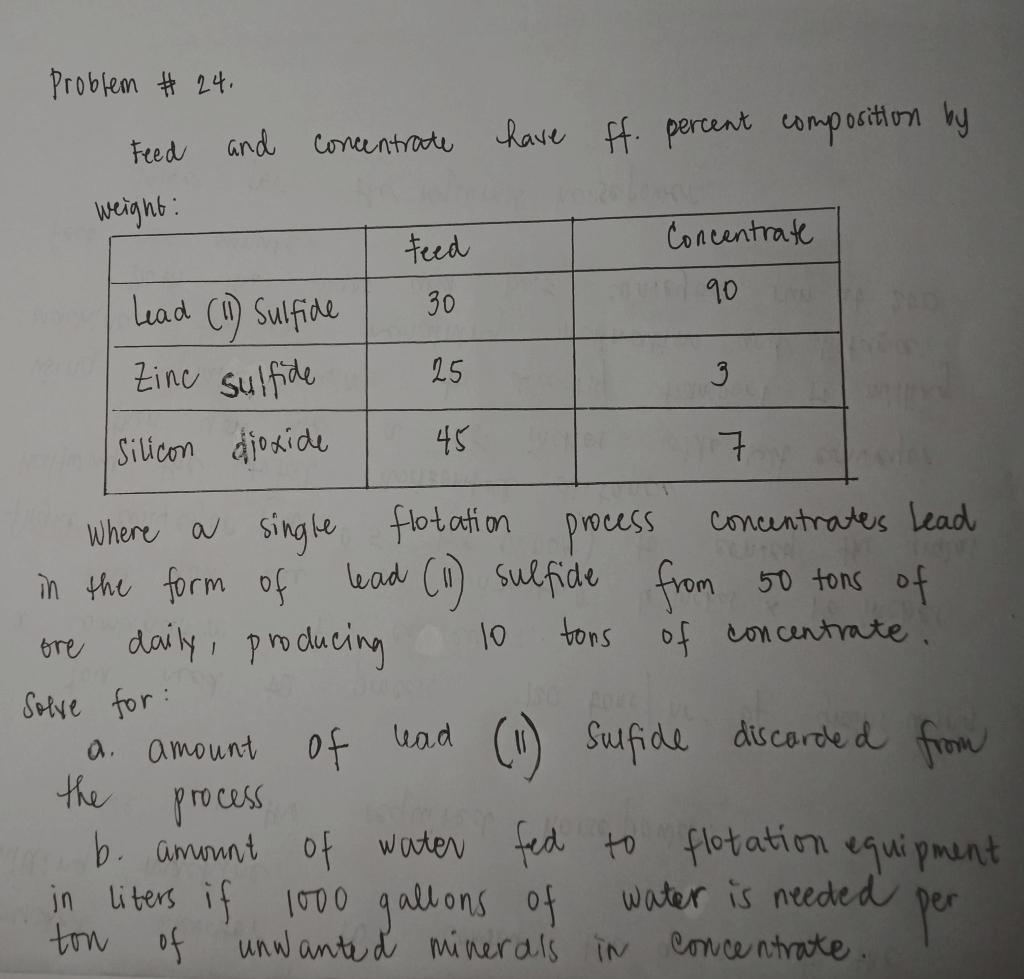 Problem # 24.
Feed and concentrate have ff. percent composition by
weight:
Feed Concentrate
Lead (II) Sulfide 30 90
Zinc sulfide 25 3
Silicon dioxide 45 7
Where a single flotation process concentrates Lead
in the form of lead (II) sulfide from 50 tons of
ore daily, producing 10 tons of concentrate.
Solve for:
a. amount of lead (II) Sulfide discarded from
the process
b. amount of water fed to flotation equipment
in liters if 1000 gallons of water is needed per
ton of unwanted minerals in concentrate.